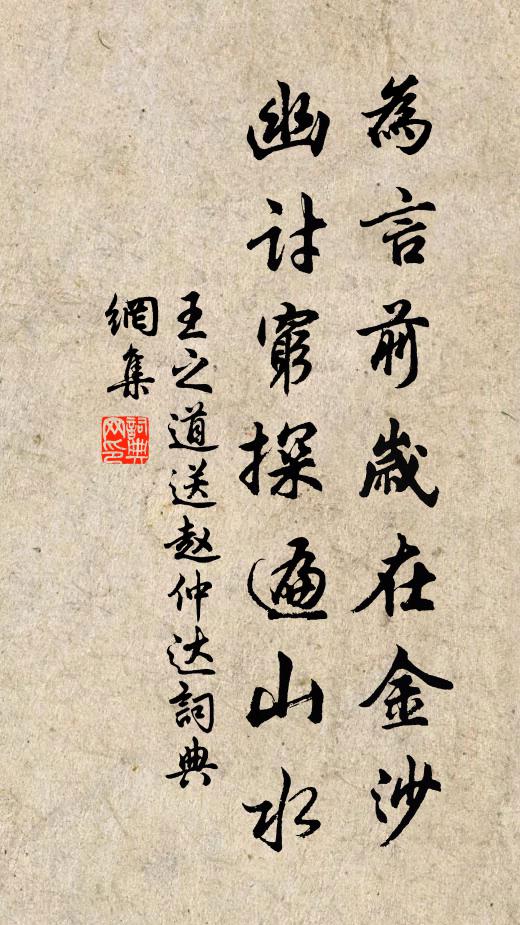 為言前歲在金沙
幽討窮探遍山水
王之道送赵仲达詞典
網集
詞典网印